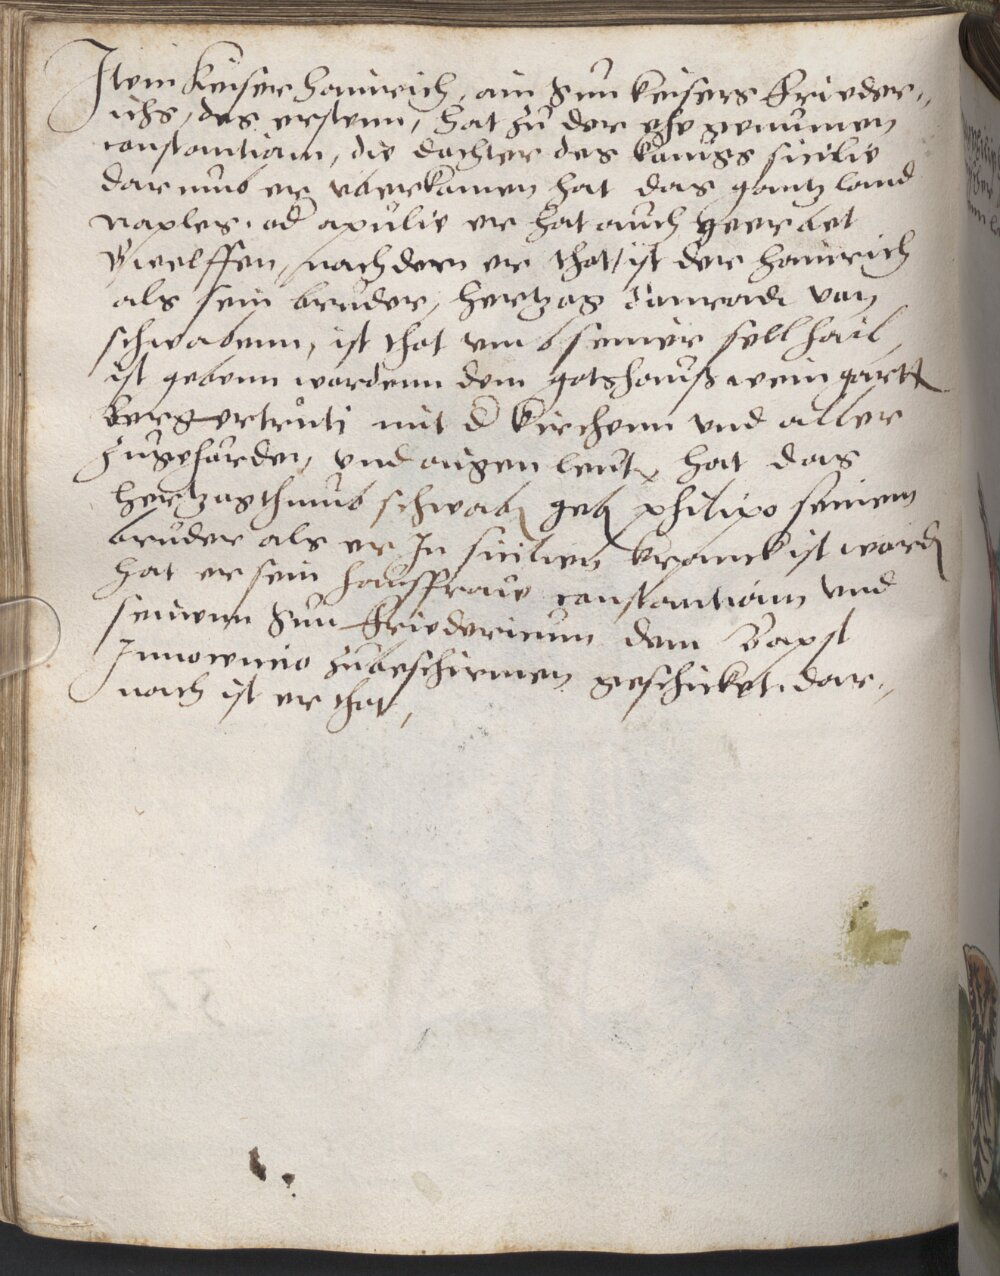 Item Keiser Hainrich, ain Sun keisers Frieder„
ichs, des erstenn, hat zu der ehe genumen
constantiam, die dochter des künigs sicilie
darumb er vberkamen hat das gantz land
naples. od apulie er hat auch geerbet
welffen, nach dem er thot, ist der hainrich
als sein bruder, hertzog Cunradt van
schwabenn, ist thot vmb seiner sell hail,
ist gebenn wordenn dem gotzhauß weingartt
berg ertruti mit d kirchenn vnd aller
zugehörden, vnd aigen leut, hat das
hertzogthumb schwabn gebn philipo seinem
bruder als er In sicilien kranck ist wordn
hat er sein hausfrawe constantiam vnd
seinenn Sun Friedericum dem Bapst
Innocencio zubeschirmen geschicket. dar„
nach ist er thot,